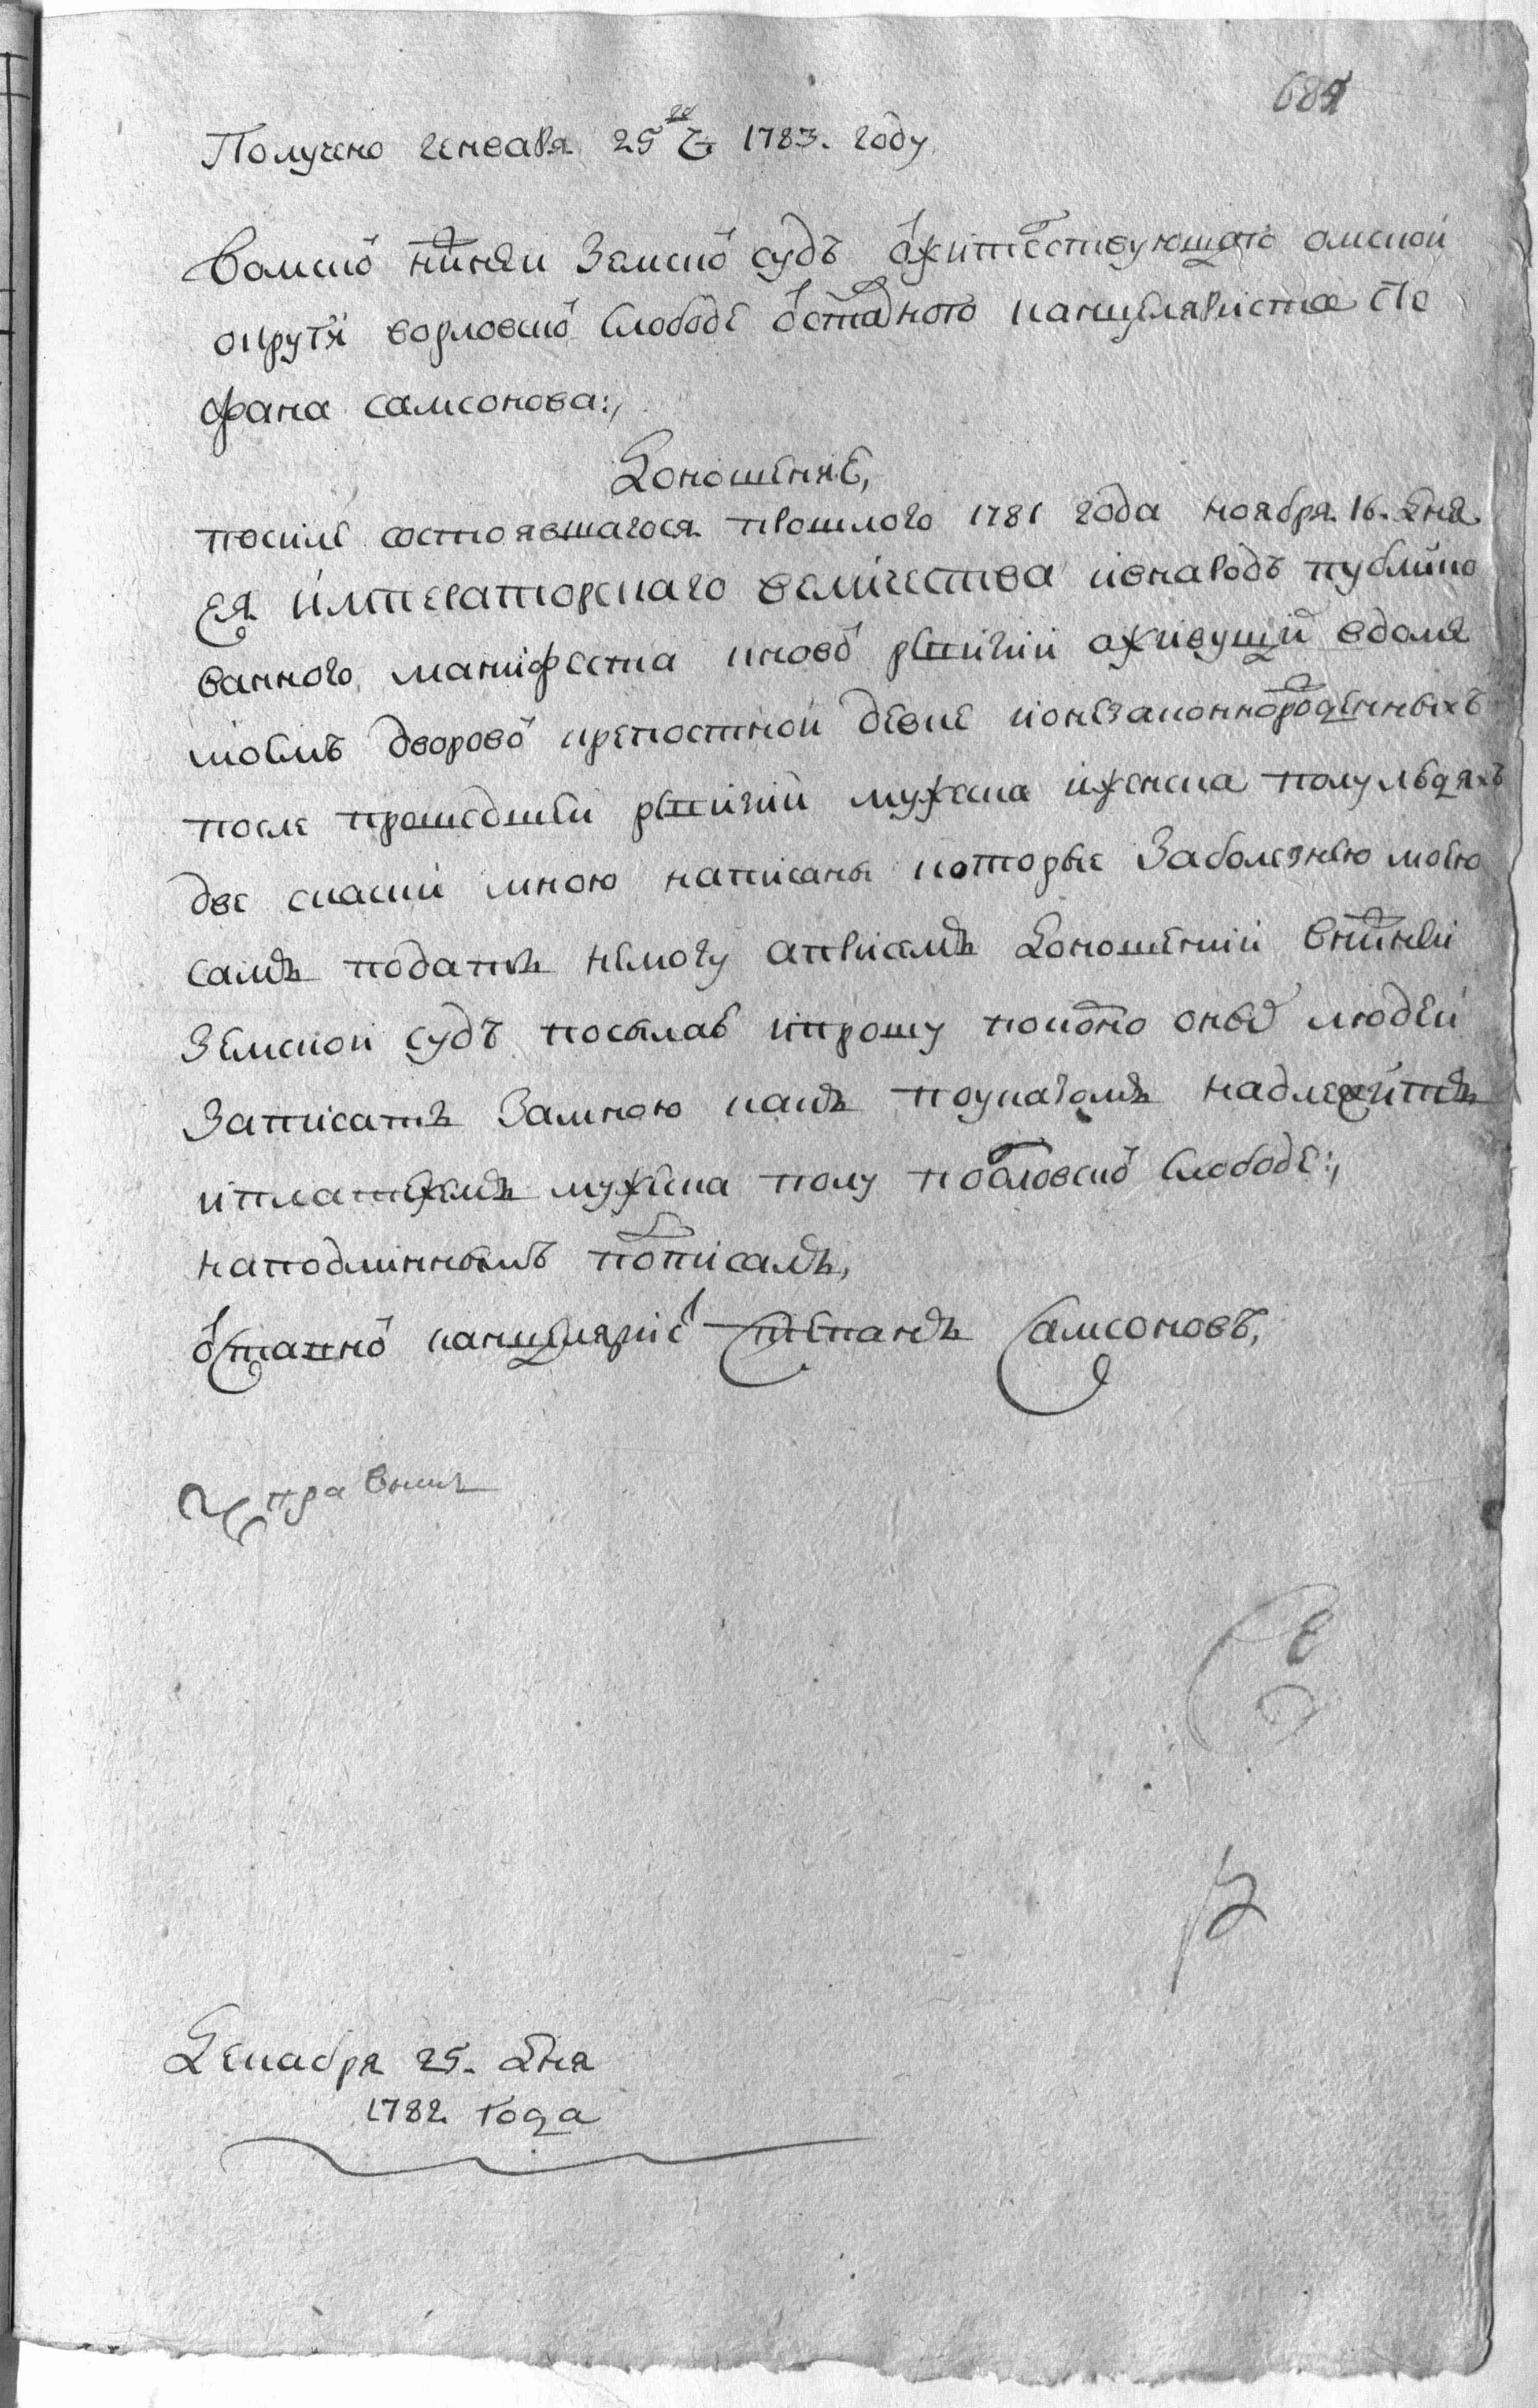 684
Получено генваря 25 г ч 1783. году
Вомско нижнеи Земско судъ ожителствующаго омскои
округи ворловско Слободе отставного канцеляриста Сте
фана самсонова:,
Доношение,
посиле состоявшагося прошлого 1781 года ноября 16. дня
ея императорскаго величества ивнародъ публико
ванного манифеста иново ревизии оживущии вдоме
моемъ дворово крепостнои девке ионезаконнорожденныхъ
после прошедшеи ревизии мужеска иженска полу людяхъ
две скаски мною написаны которые Заболезнею моею
самъ подать немогу априсемъ доношении внижнеи
Земскои судъ посылаю ипрошу покото оных людеи
Записать Замною какъ покупагомъ надлежитъ
иплатежемъ мужеска полу поорловско Слободе:,
наподлинномъ пописалъ,
отставно канцелярис Степанъ Самсоновъ,
Декабря 25. дня
1782 года